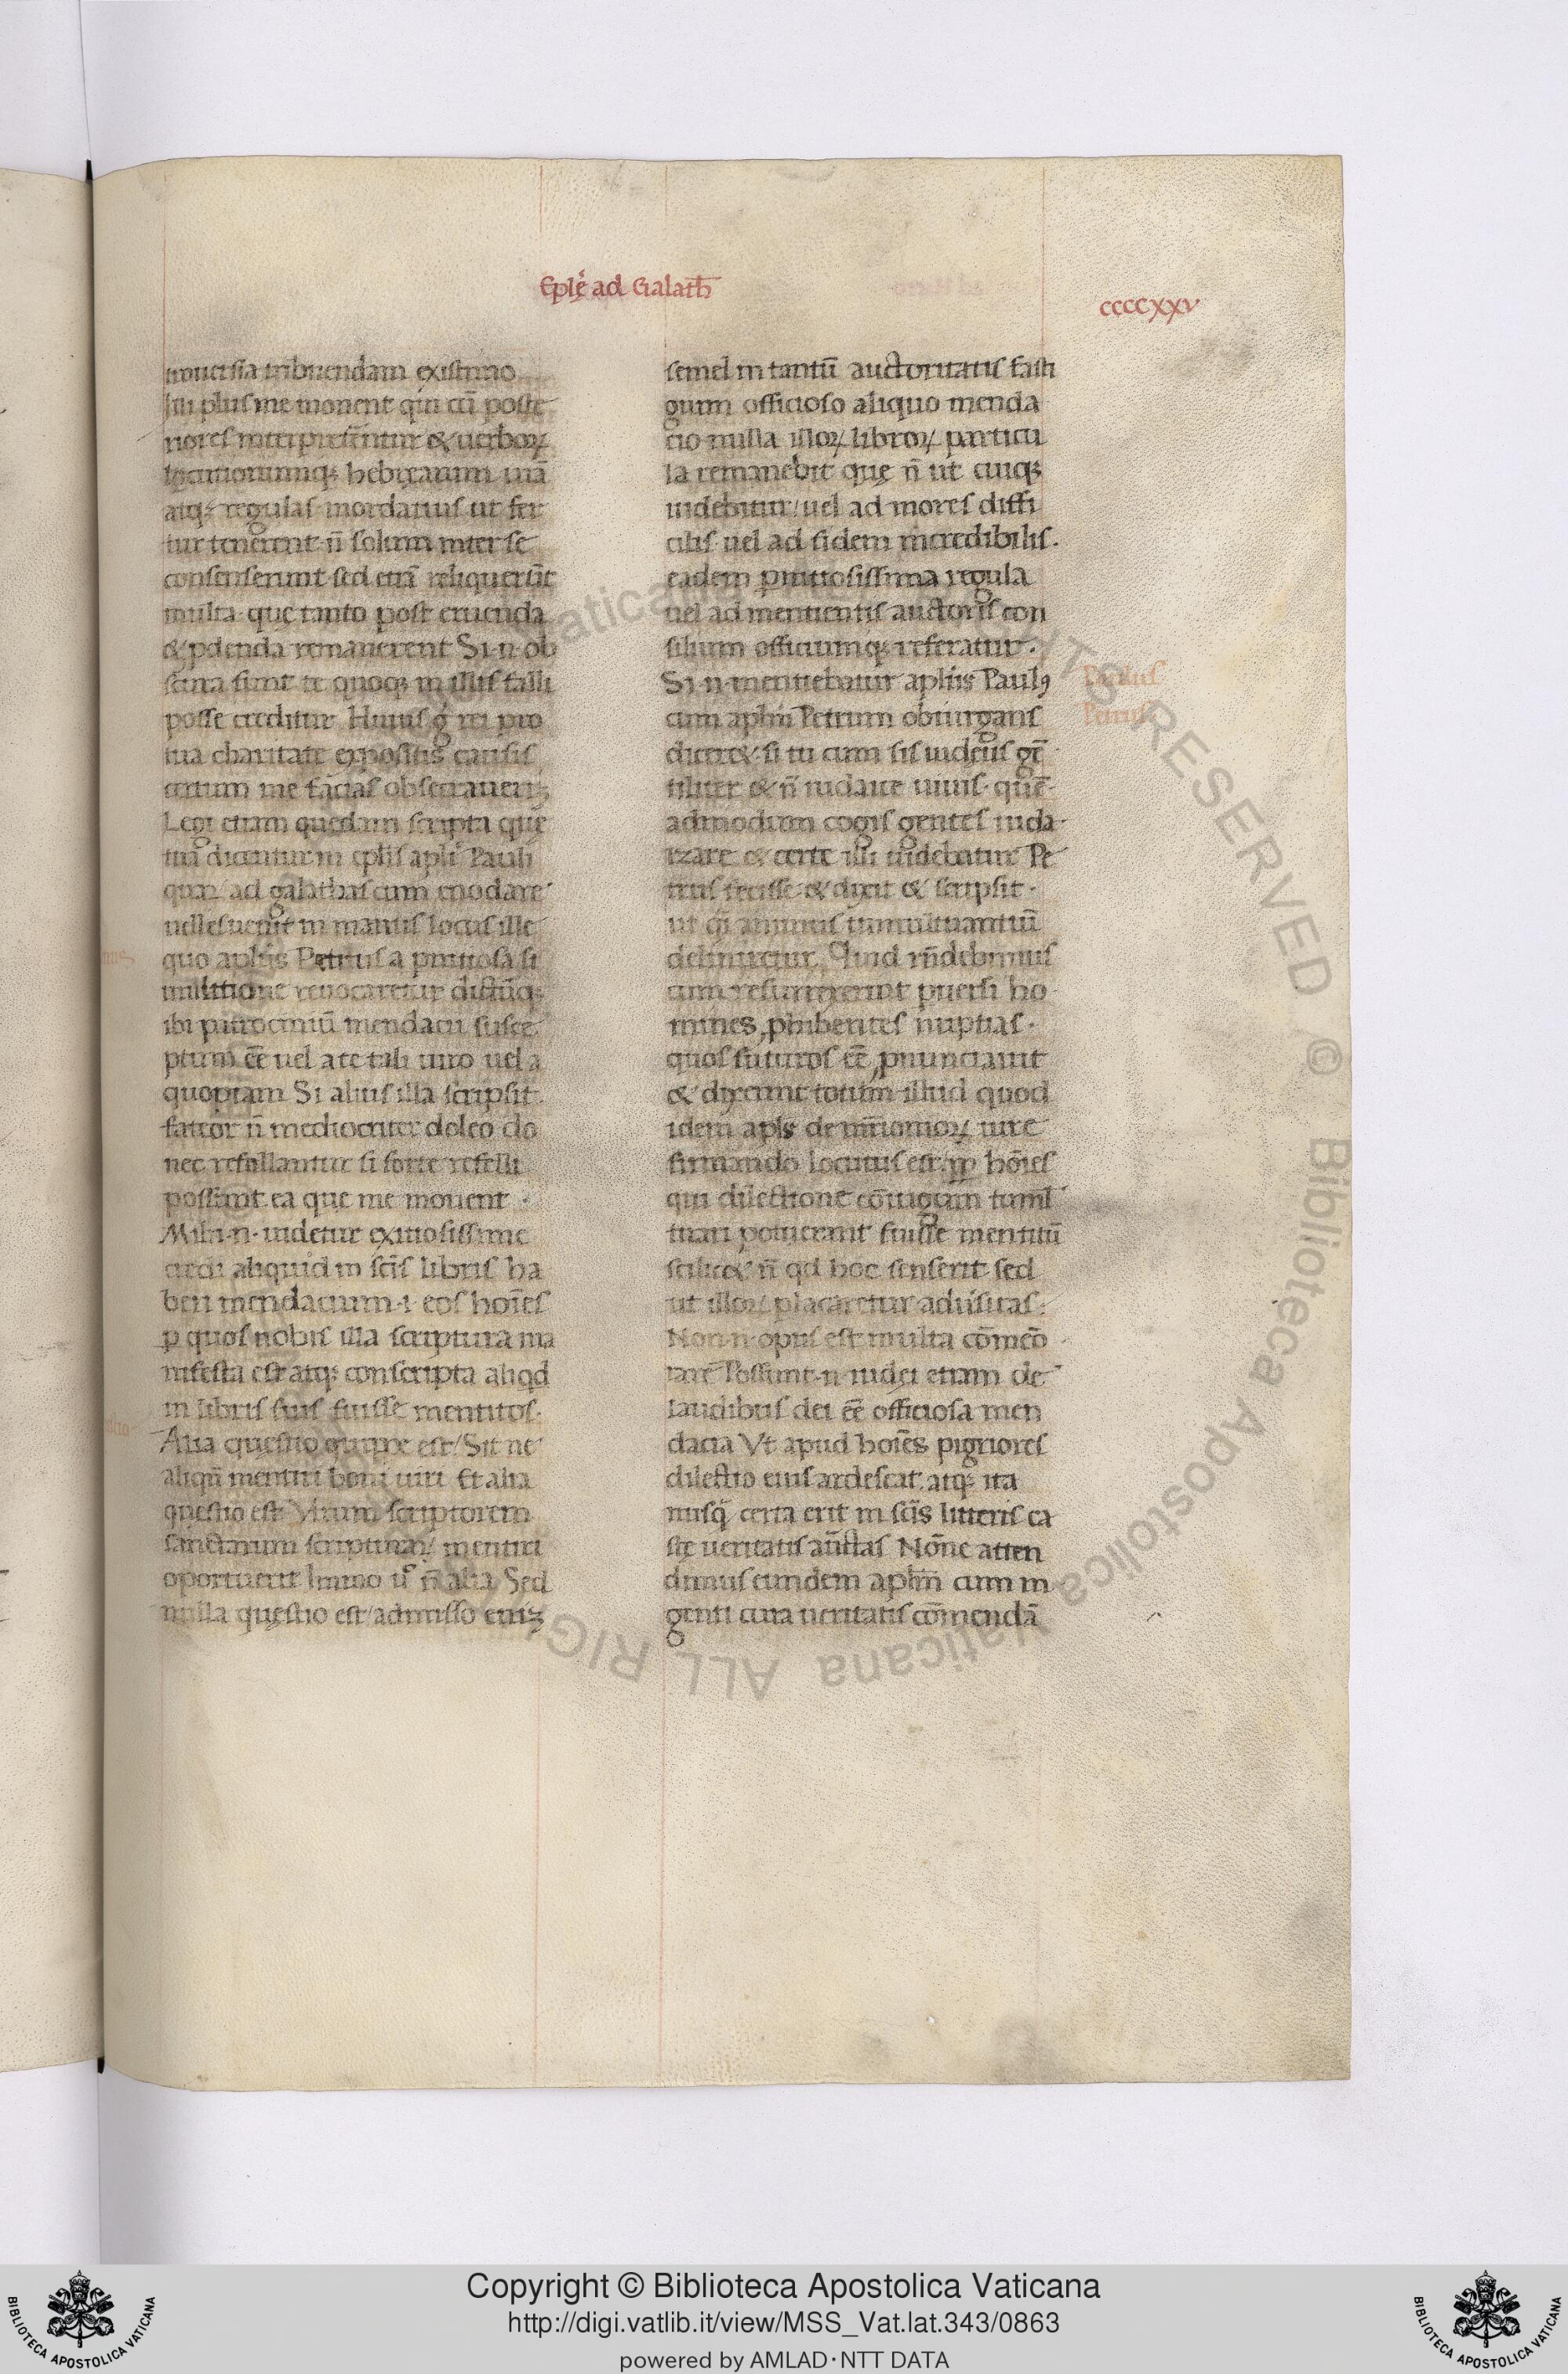 Eplę ad Galath
ccccxxv
trouersia tribuendam existimo
Illi plus me mouent qui cū poste
riores interpretentur & uerboꝝ
locutionumqꝫ hebręarum uiā
atqꝫ regulas mordatius ut fer
tur tenerent n̄ solum inter se
consenserunt sed etiā reliquerūt
multa que tanto post eruenda
& pdenda remanerent Si·n·ob
scura sunt te quoqꝫ in illis falli
posse creditur Huius g̊ rei pro
tua charitate expositis causis
certum me facias obsecrauerīꝫ
Legi etiam quędam scripta quę
tua dicentur in eplis apli Pauli
quaꝝ ad galathas cum enodare
uelles uenit in manus locus ille
quo aplus Petrus a pnitiosa si
mulatione reuocaretur dictūqꝫ
ibi patrociniū mendacii susce
ptum ēe uel a te tali uiro uel a
quopiam Si alius illa scripsit
fateor n̄ mediocriter doleo do
nec refellantur si forte refelli
possunt ea que me mouent ·
Mihi·n·uidetur exitiosissime
credi aliquid in scīs libris ha
beri mendacium·i·eos hoīes
p quos nobis illa scriptura ma
nifesta est atqꝫ conscripta aliqd
in libris suis fuisse mentitos·
Alia quęstio quippe est/ Sit ne
aliqn̄ mentiri boni uiri Et alia
quęstio est Vtrum scriptorem
sanctarum scripturaꝝ mentiri
oportuerit Immo ů n̄ alia Sed
nulla quęstio est/ admisso enīꝫ
semel in tantū auctoritatis fasti
gium officioso aliquo menda
cio nulla illoꝝ libroꝝ particu
la remanebit quę n̄ ut cuiqꝫ
uidebitur/ uel ad mores diffi
cilis uel ad fidem incredibilis.
eadem pnitiosissima regula
uel ad mentientis auctoris con
silium officiumqꝫ referatur·
Si·n·mentiebatur aplus Paulꝰ
Paulus
cum aplm Petrum obiurgans
Petrus
diceret·si tu cum sis iudęus gē
tiliter & n̄ iudaice uiuis·quē
admodum cogis gentes iuda
izare & certe illi uidebatur Pe
trus fecisse & dixit & scripsit·
ut qi animus tumultuantiū
deliniretur Quid rn̄debimus
cum resurrexerint puersi ho
mines phibentes nuptias·
quos futuros ēe pnunciauit
& dixerint totum illud quod
idem apls de mr̄imonioꝝ iure
firmando locutus est pp hoīes
qui dilectione cōiugum tumł
tuari potuerant fuisse mentitū
scilicet n̄ qd hoc senserit sed
ut illoꝝ placaretur aduersitas:
Non·n·opus est multa cōmēo
rare Possunt·n·uideri etiam de
laudibus dei ēe officiosa men
dacia Vt apud hoīes pigriores
dilectio eius ardescat atqꝫ ita
nusq̄ certa erit in scīs litteris ca
stę ueritatis auctas Nōne atten
dimus eundem aplm̄ cum in
genti cura ueritatis cōmendā
Copyright © Biblioteca Apostolica Vaticana
http://digi.vatlib.it/view/MSS_Vat.lat.343/0863
powered by AMLAD·NTT DATA